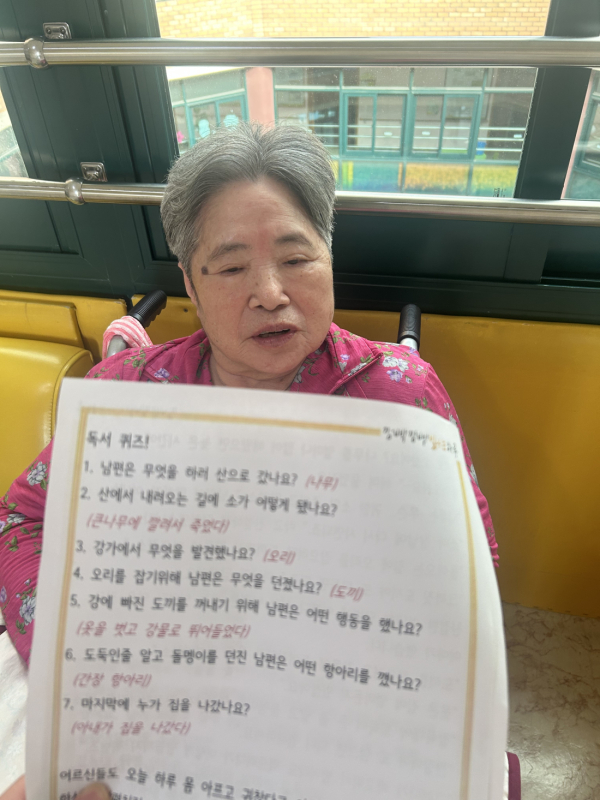 독서 퀴즈!
1. 남편은 무엇을 하러 산으로 갔나요? (나무)
2. 산에서 내려오는 길에 소가 어떻게 됐나요?
(큰나무에 깔려서 죽었다)
3. 강가에서 무엇을 발견했나요? (오리)
4. 오리를 잡기위해 남편은 무엇을 던졌나요? (도끼)
5. 강에 빠진 도끼를 꺼내기 위해 남편은 어떤 행동을 했나요?
(옷을 벗고 강물로 뛰어들었다)
6. 도둑인줄 알고 돌멩이를 던진 남편은 어떤 항아리를 깼나요?
(간장 항아리)
7. 마지막에 누가 집을 나갔나요?
(아내가 집을 나갔다)
어르신들도 오늘 하루 몸 아프고